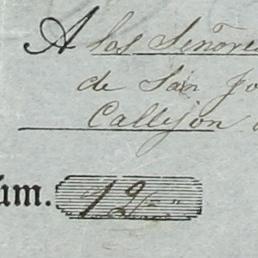 A los Señores
de San Jo
Callejon
úm. 12